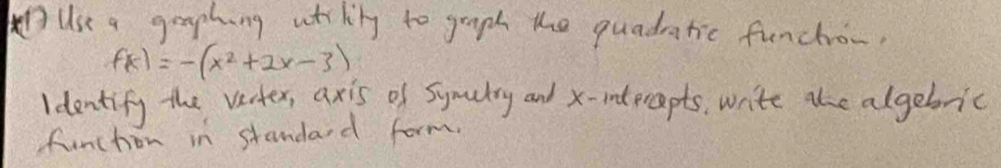 *17 Use a graphing utility to graph the quadratic function.
f(x) = -(x² + 2x - 3)
Identify the vertex, axis of Symetry and x-intercepts. write the algebric
function in standard form.